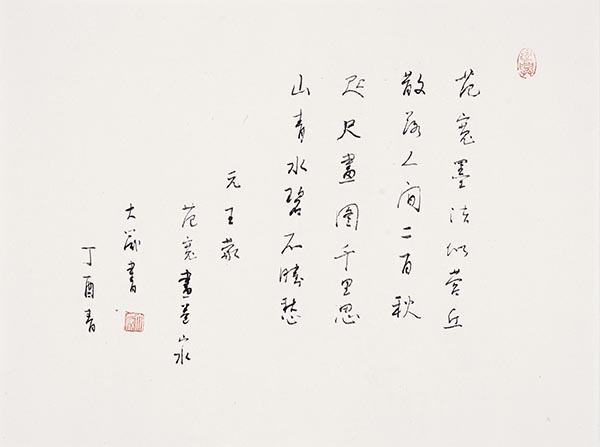 范寬墨法似營丘
散落人間二百秋
咫尺畫圖千里思
山青水碧不勝愁
元王蒙
范寬畫山水
大書
丁酉